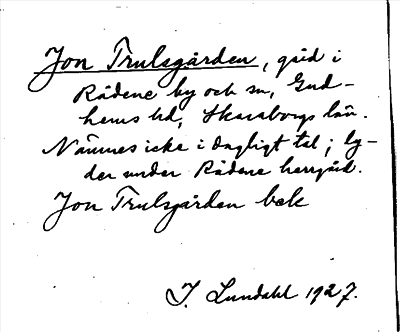 Jon Trulsgården, gård i
Rådene by och sn, Gud-
hems hd, Skaraborgs län.
Nämnes icke i dagligt tal; ly-
der under Rådene herrgård.
Jon Trulsgården bek
I. Lundahl 1927.